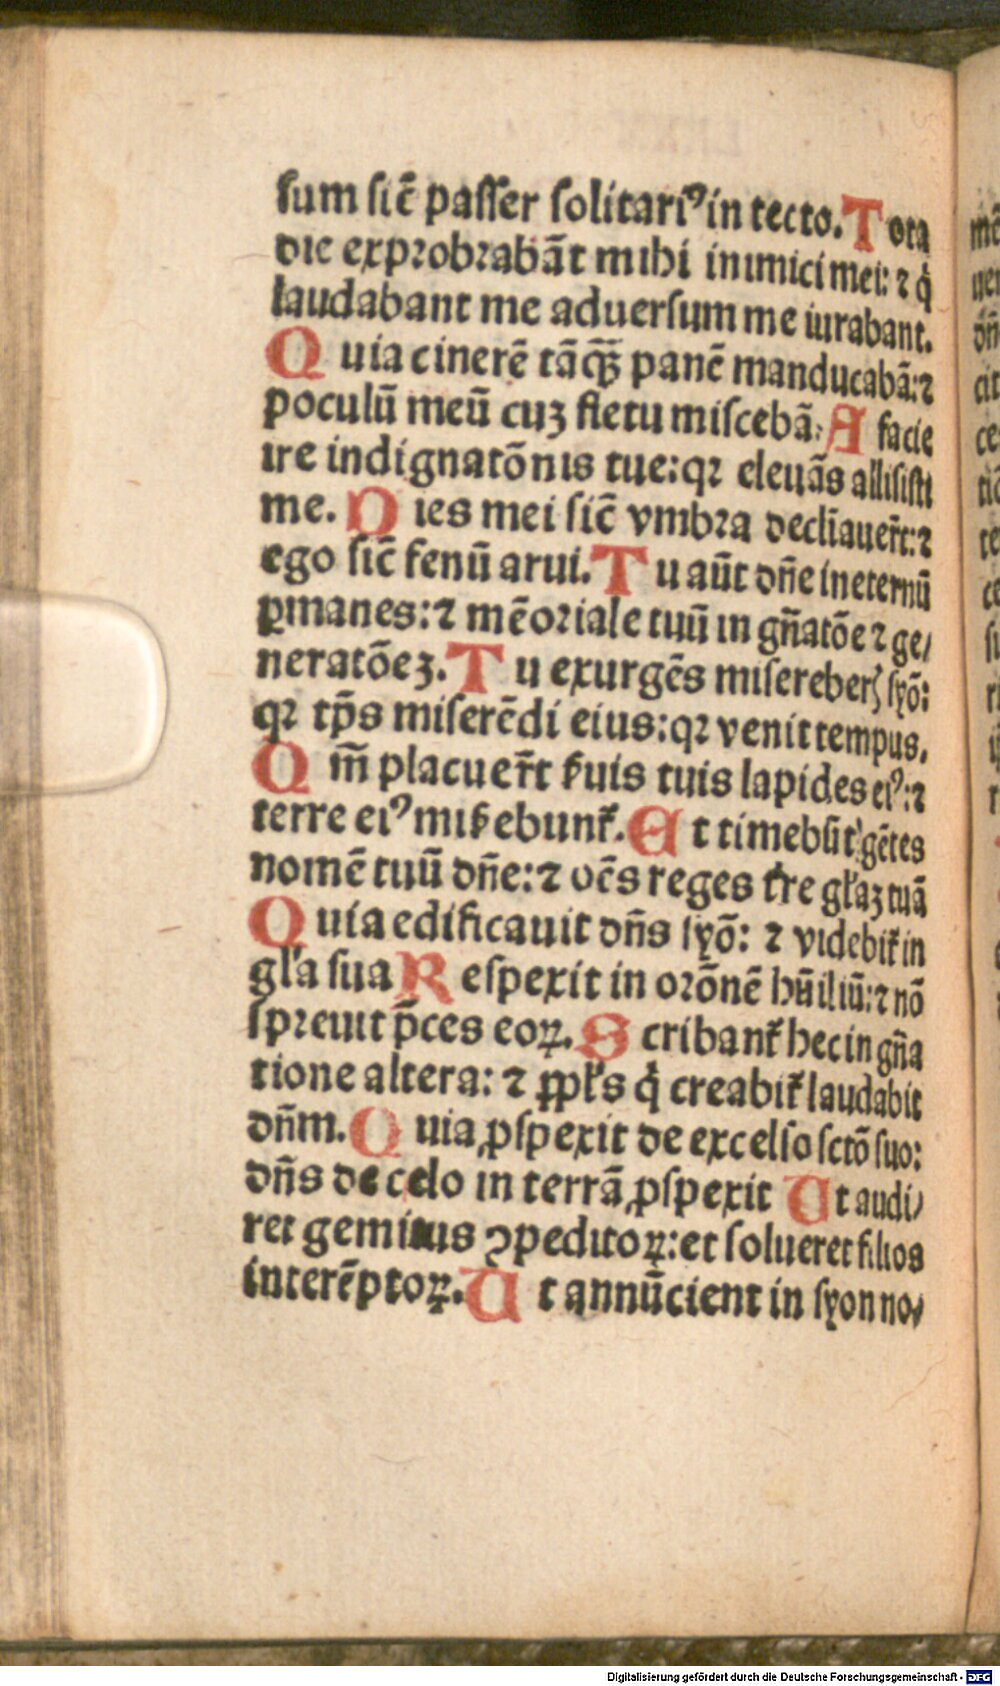 ſum ſic̄ paſſer ſolitariꝰ in tecto. Tota
die exprobrabāt mihi inimici mei: ⁊ q̇
laudabant me aduerſum me iurabant.
Quia cinerē tāq̄ꝫ panē manducabā: ⁊
poculū meū cuꝫ fletu miſcebā: A facie
ire indignatōnis tue: qꝛ eleuās alliſiſti
me. Dies mei ſic̄ vmbra decliauer̄t: ⁊
ego ſic̄ fenū arui. Tu aūt dn̄e in eternū
ꝑmanes: ⁊ mēoriale tuū in gn̄atōe ⁊ ge/
neratōeꝫ. Tu exurgēs miſereberꝭ ſyō:
qꝛ tp̄s miſerēdi eius: qꝛ venit tempus.
Qm̄ placuer̄t ẜuis tuis lapides eiꝰ: ⁊
terre eiꝰ miẜebunt᷑. Et timebūt gētes
nomē tuū dn̄e: ⁊ oēs reges t̄re gl̄aꝫ tuā
Quia edificauit dn̄s ſyō: ⁊ videbit᷑ in
gl̄a ſua Reſpexit in orōnē hūiliū: ⁊ nō
ſpreuit p̄ces eoꝝ. Scribant᷑ hec in gn̄a
tione altera: ⁊ ꝓpl̄s q̇ creabit᷑ laudabit
dn̄m. Quia ꝓſpexit de excelſo ſctō ſuo:
dn̄s de celo in terrā ꝓſpexit Ut audi/
ret gemitus ꝯpeditoꝝ: et ſolueret filios
interēptoꝝ. Ut annūcient in ſyon no/
Digitalisierung gefördert durch die Deutsche Forschungsgemeinschaft - DFG